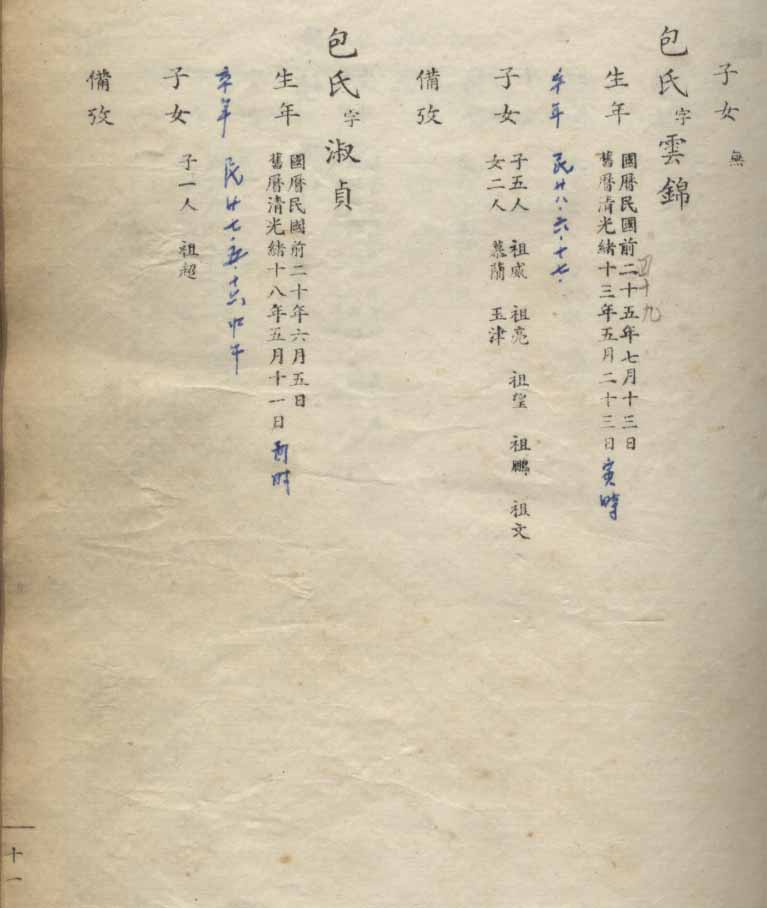 子女 無
包氏 字 雲錦
生年 國曆民國前二十五年七月十三日
舊曆清光緒十三年五月二十三日 寅時
四十九
卒年 民廿八·六·十七·
子女 子五人 祖威 祖亮 祖望 祖鵬 祖文
女二人 慕蘭 玉津
備攷
包氏 字 淑貞
生年 國曆民國前二十年六月五日
舊曆清光緒十八年五月十一日 時
卒年 民廿七·五·十六 中午
子女 子一人 祖超
備攷
十一